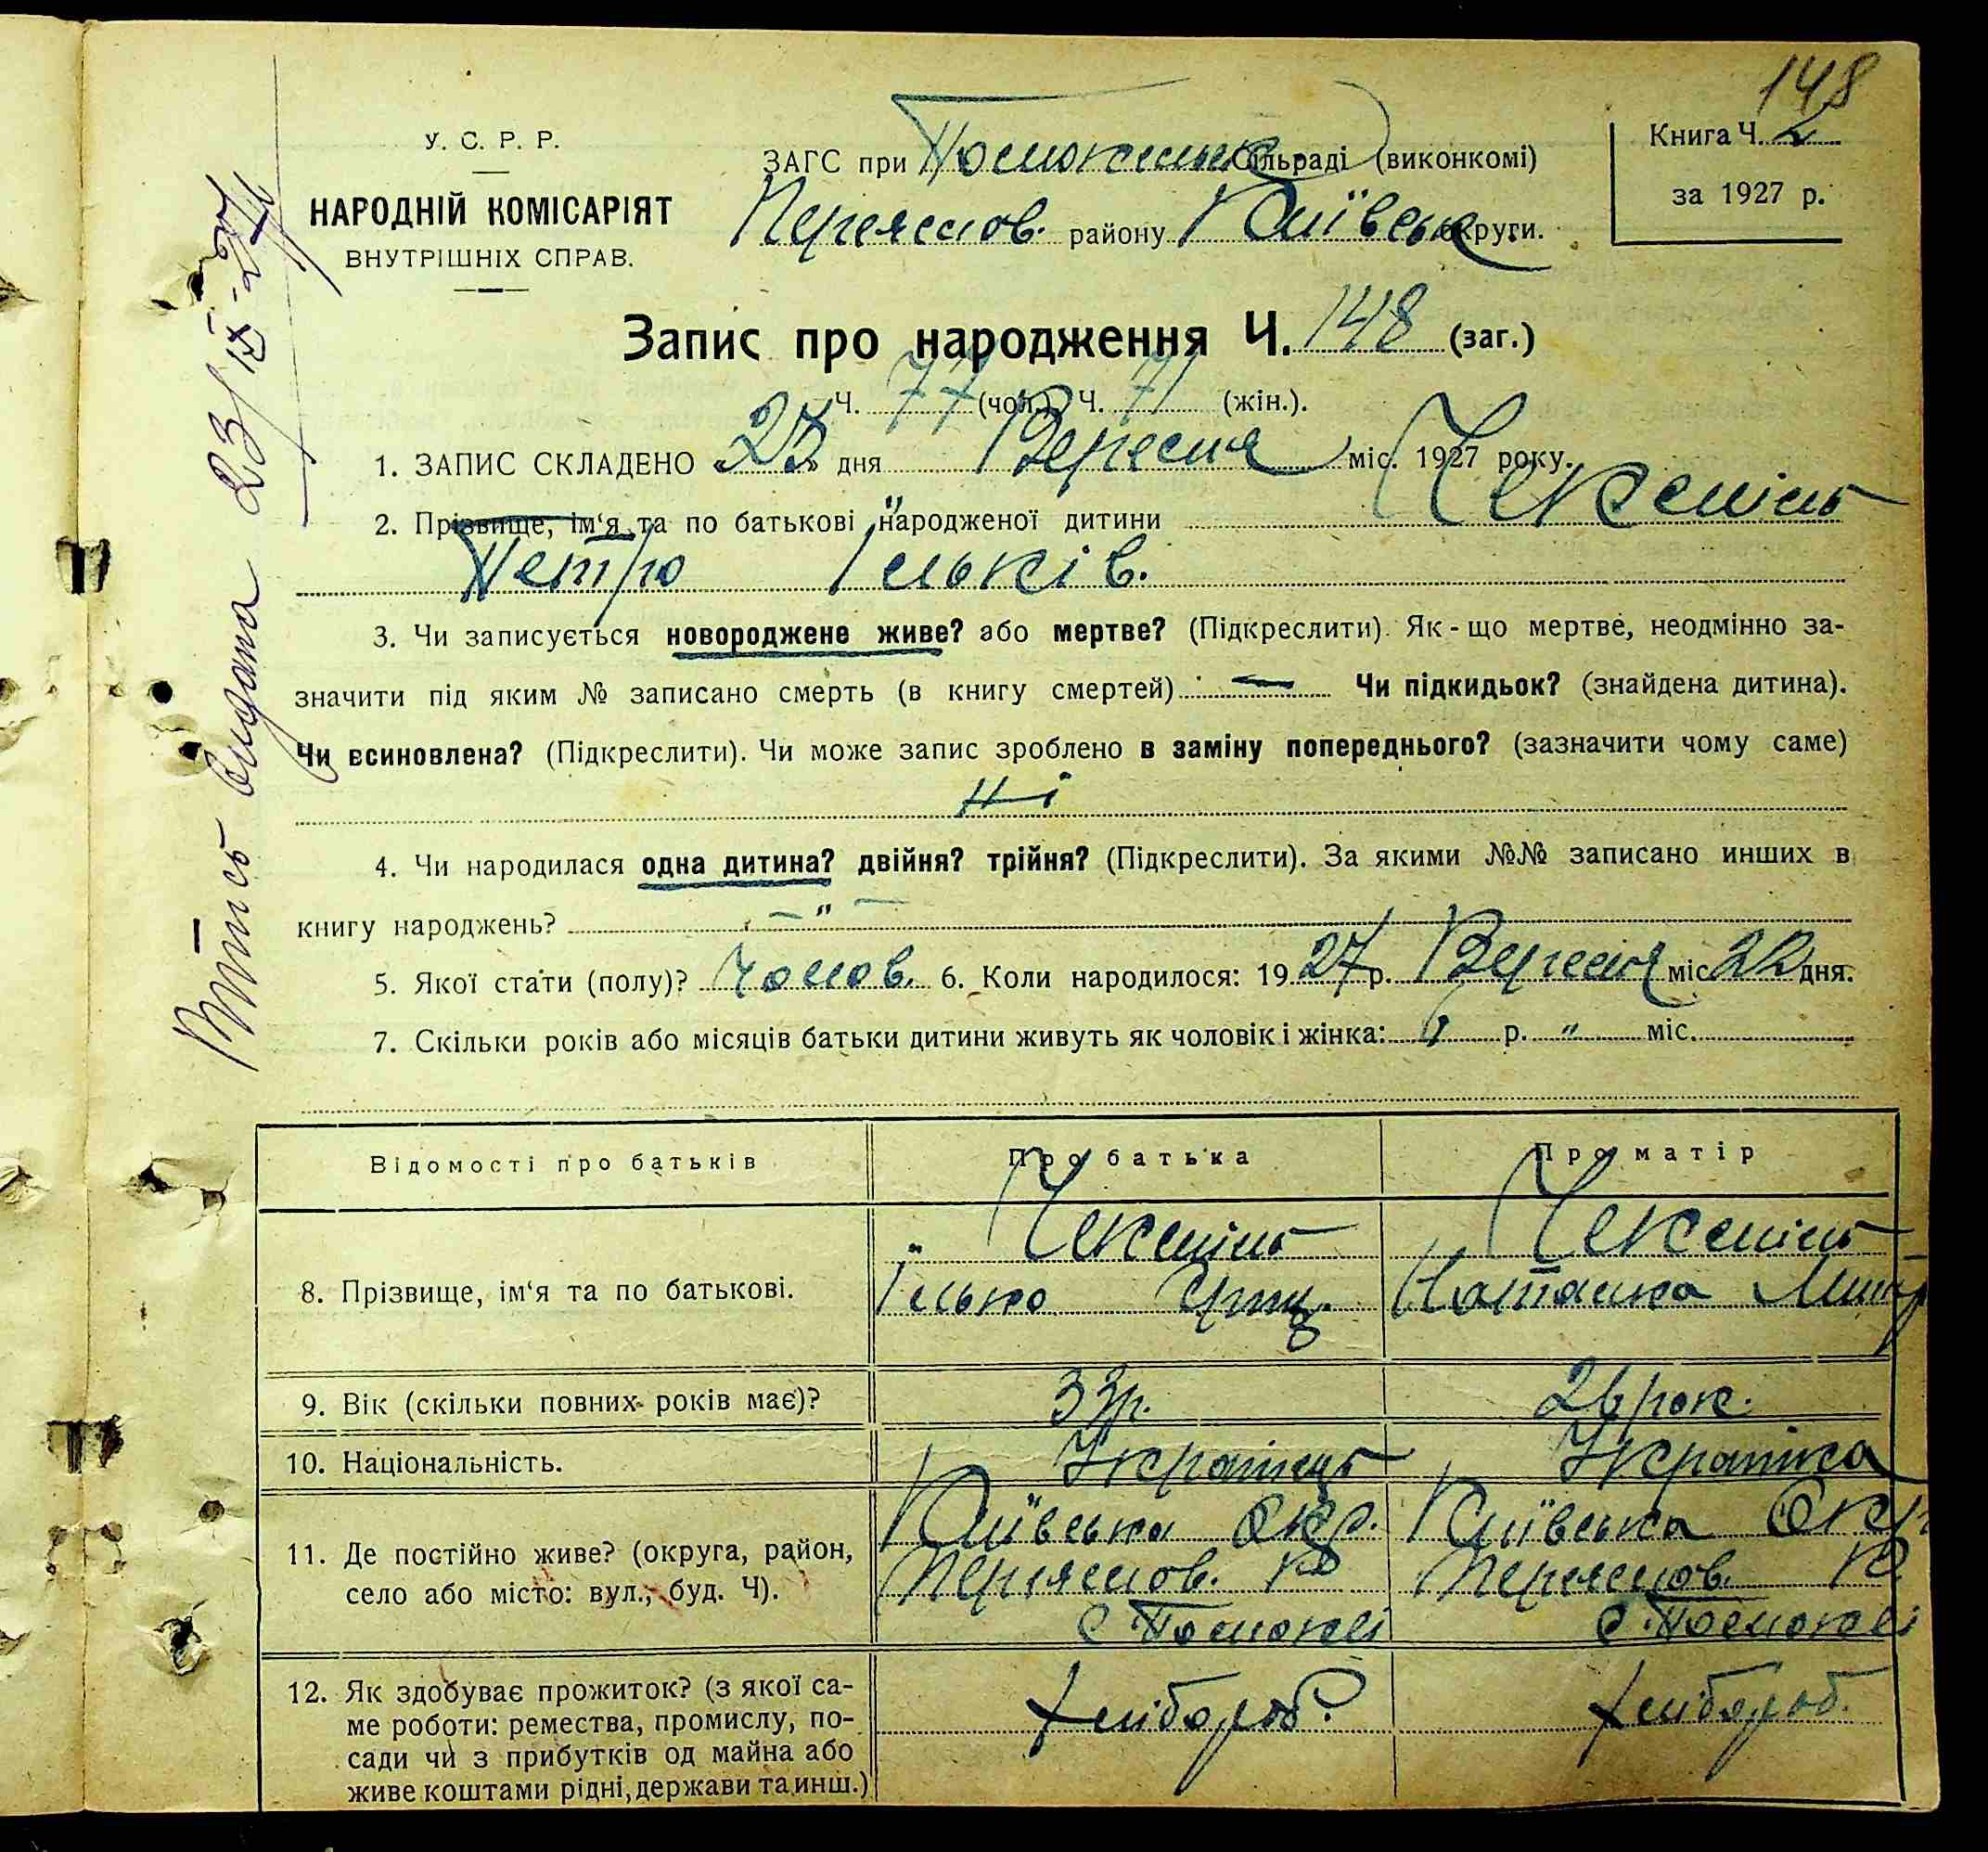 148
У. С. Р. Р.
НАРОДНІЙ КОМІСАРІЯТ
ВНУТРІШНІХ СПРАВ.
ЗАГС при Положаєвськ Сільраді (виконкомі)
Переяслов. району Київськ округи.
Книга Ч. 2
за 1927 р.
Запис про народження Ч. 148 (заг.)
Ч. 77 (чол.) Ч. 71 (жін.).
1. ЗАПИС СКЛАДЕНО „23“ дня Вересня міс. 1927 року.
2. Прізвище, ім‘я та по батькові народженої дитини
Петро Ільків.
3. Чи записується новороджене живе? або мертве? (Підкреслити). Як-що мертве, неодмінно за-
значити під яким № записано смерть (в книгу смертей) — Чи підкидьок? (знайдена дитина).
Чи всиновлена? (Підкреслити). Чи може запис зроблено в заміну попереднього? (зазначити чому саме)
Ні
4. Чи народилася одна дитина? двійня? трійня? (Підкреслити). За якими №№ записано инших в
книгу народжень? — " —
5. Якої стати (полу)? Чолов. 6. Коли народилося: 1927 р. Вересня міс 22 дня.
7. Скільки років або місяців батьки дитини живуть як чоловік і жінка: р. " міс.
Відомості про батьків Про батька Про матір
8. Прізвище, ім‘я та по батькові.
Ілько Наталка
9. Вік (скільки повних років має)? 33 р. 26 рок.
10. Національність. Українець Українка
11. Де постійно живе? (округа, район,
село або місто: вул., буд. Ч).
Київська Окр. Київська Окр
Переяслов. Р Переяслов. Р.
12. Як здобуває прожиток? (з якої са-
ме роботи: ремества, промислу, по-
сади чи з прибутків од майна або
живе коштами рідні, держави та инш.)
Хлібороб. Хлібороб.
видана 23/IX-27